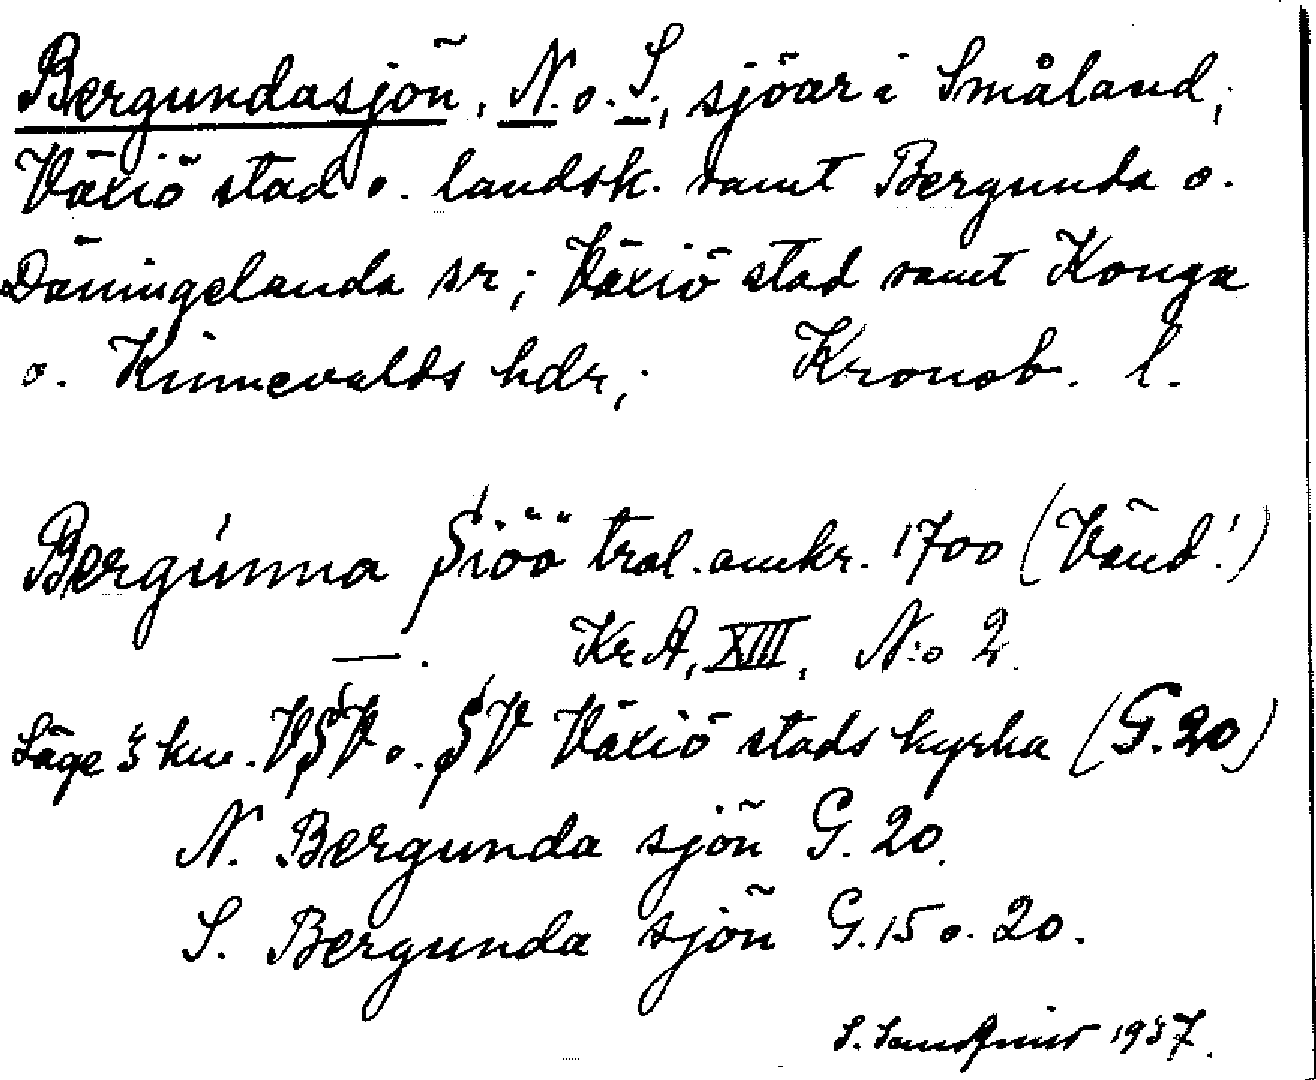 Bergundasjön, N. o. S., sjöar i Småland,
Växiö stad o. landsk. samt Bergunda o.
Däningelanda sr; Växiö stad samt Konga
o. Kinnevalds hdr; Kronob. l.
Bergúnna Siöö tral. omkr. 1700 (Vänd!)
—. KrA, XIII, N:o 2.
Läge 3 km. VSV o. SV Växiö stads kyrka (G. 20)
N. Bergunda sjön G. 20.
S. Bergunda sjön G. 15 o. 20.
S. 1937.